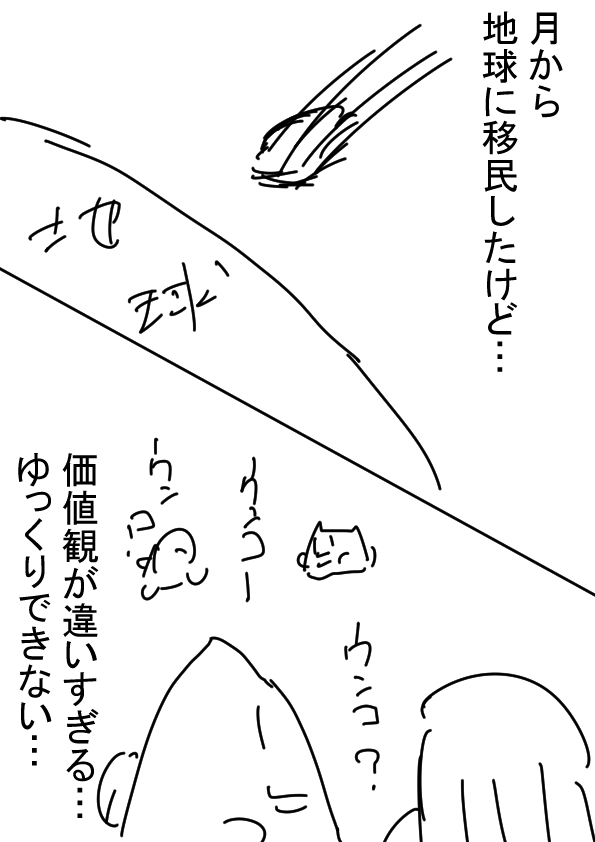 月から
地球に移民したけど…
地球
ウンコ
ウンコー
ウンコ?
価値観が違いすぎる…
ゆっくりできない…